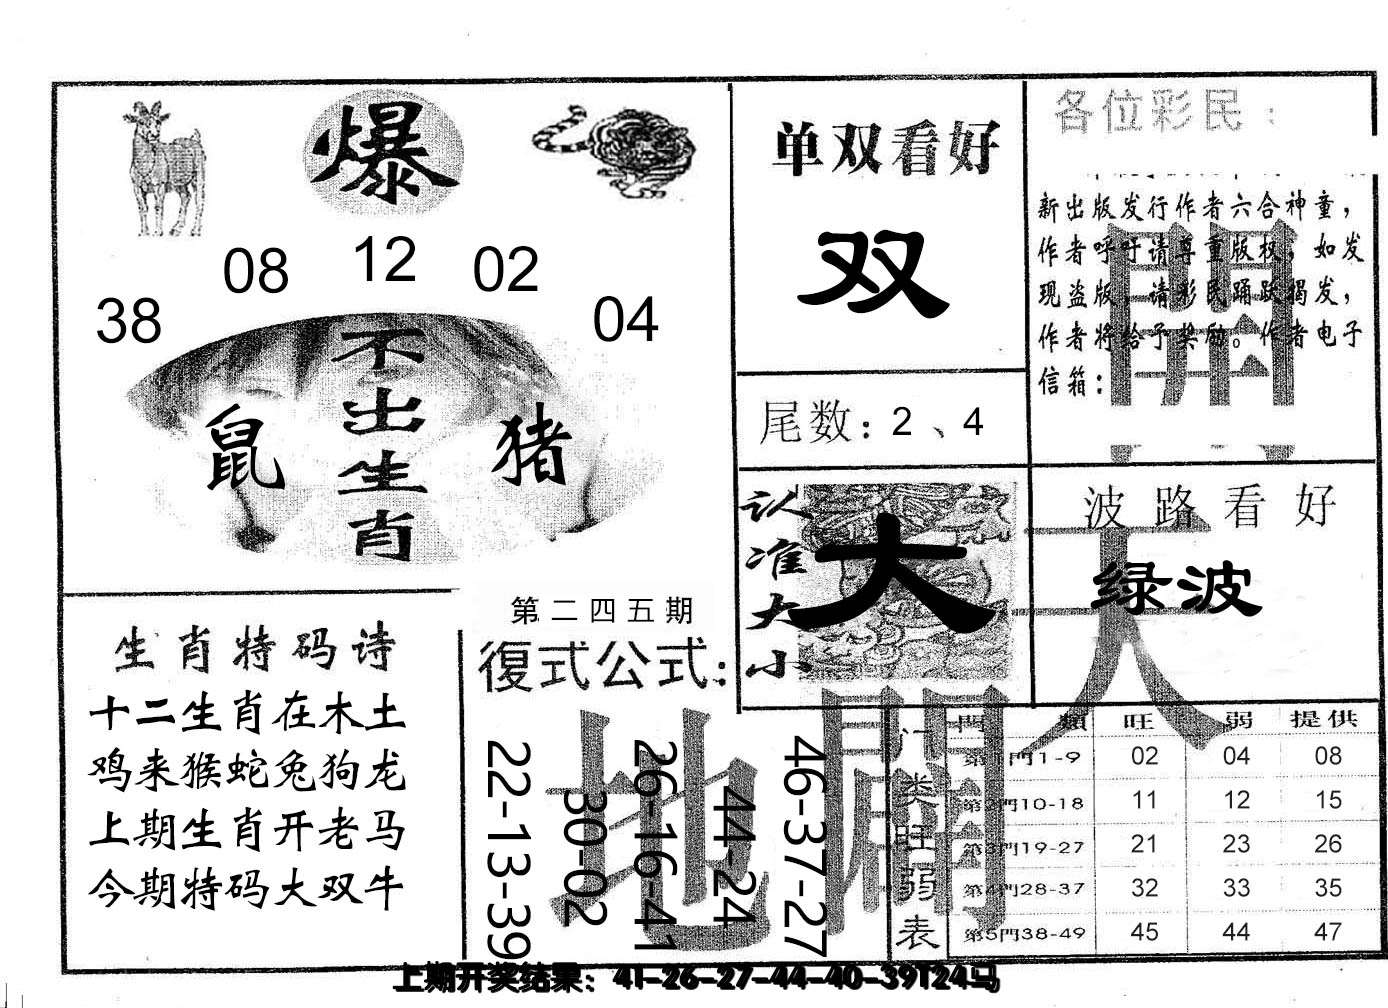 爆
38 08 12 02 04
不出生肖
鼠
猪
单双看好
双
尾数：2、4
各位彩民：
新出版发行作者六合神童，
作者呼吁请尊重版权，如发
现盗版，请彩民踊跃揭发，
作者将给予奖励。作者电子
信箱：
認准大小
大
波路看好
绿波
天
地
開
生肖特码诗
十二生肖在木土
鸡来猴蛇兔狗龙
上期生肖开老马
今期特码大双牛
第二四五期
復式公式：
22-13-39
30-02
26-16-41
44-24
46-37-27
门类旺弱表
門類 旺 弱 提供
第1門1-9 02 04 08
第2門10-18 11 12 15
第3門19-27 21 23 26
第4門28-37 32 33 35
第5門38-49 45 44 47
上期开奖结果：41-26-27-44-40-39T24马